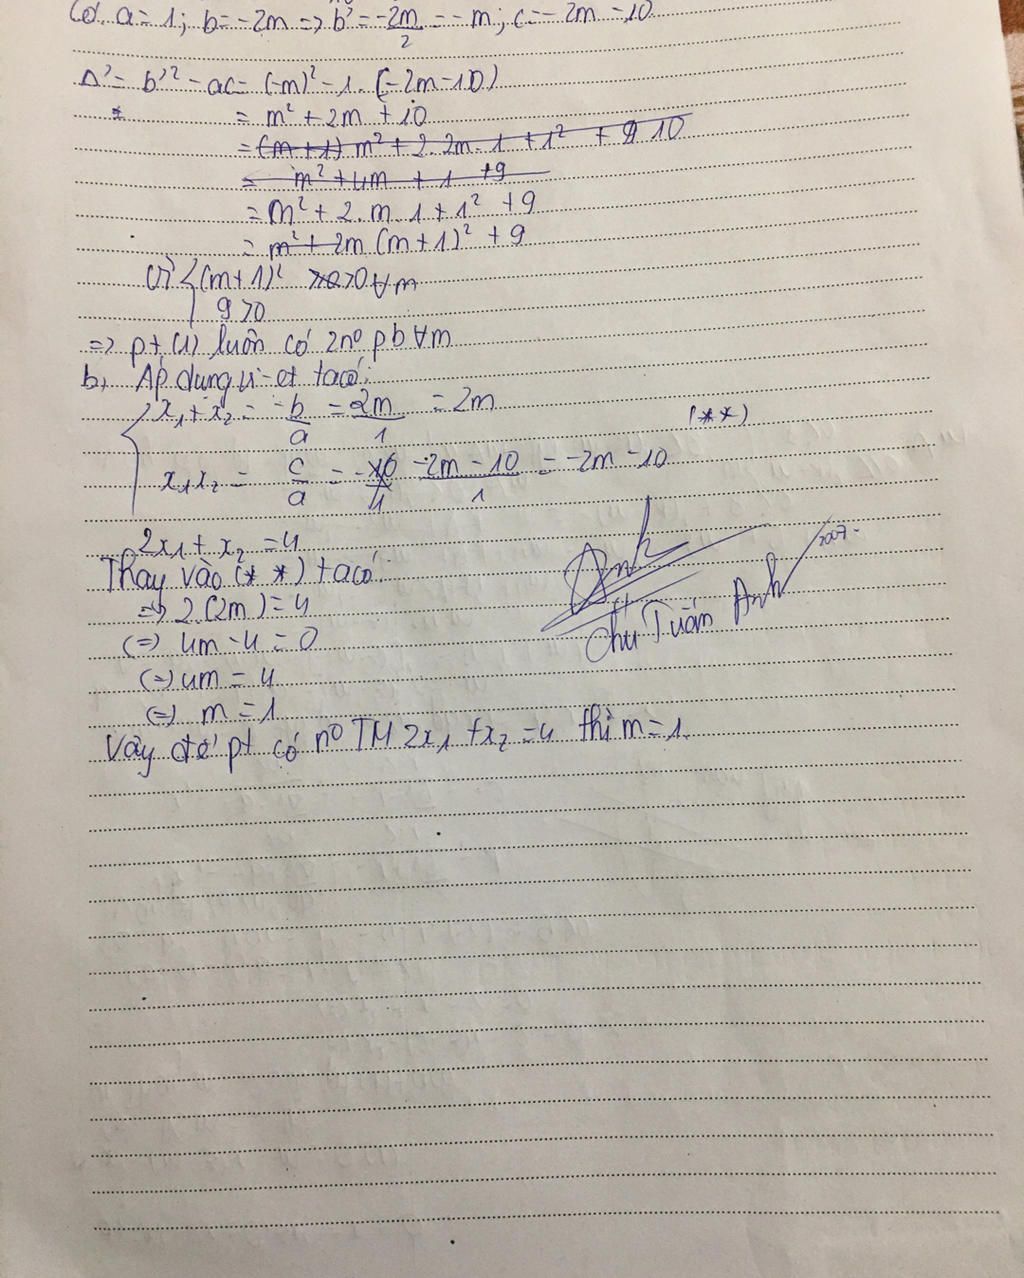 Có a = 1; b = -2m => b' = -2m/2 = -m; c = -2m -10
Δ' = b'² - ac = (-m)² - 1. (-2m-10)
= m² + 2m + 10
= (m+1) m² + 2.2m.1 + 1² + 9 10
= m² + 4m + 1 + 9
= m² + 2.m.1 + 1² + 9
= m² + 2m (m+1)² + 9
Vì { (m+1)² ≥0 ∀m
9 > 0
=> pt (1) luôn có 2 nº pb ∀m
b, Áp dụng vi-et ta có:
{ x₁ + x₂ = -b/a = 2m/1 = 2m
(**)
x₁x₂ = c/a = -2m - 10/1 = -2m -10
2x₁ + x₂ = 4
Thay vào (**) ta có:
=> 2.(2m) = 4
(=) 4m - 4 = 0
(=) 4m = 4
(=) m = 1
Vậy để pt có nº TM 2x₁ + x₂ = 4 thì m = 1.
Anh
Chu Tuấn Anh